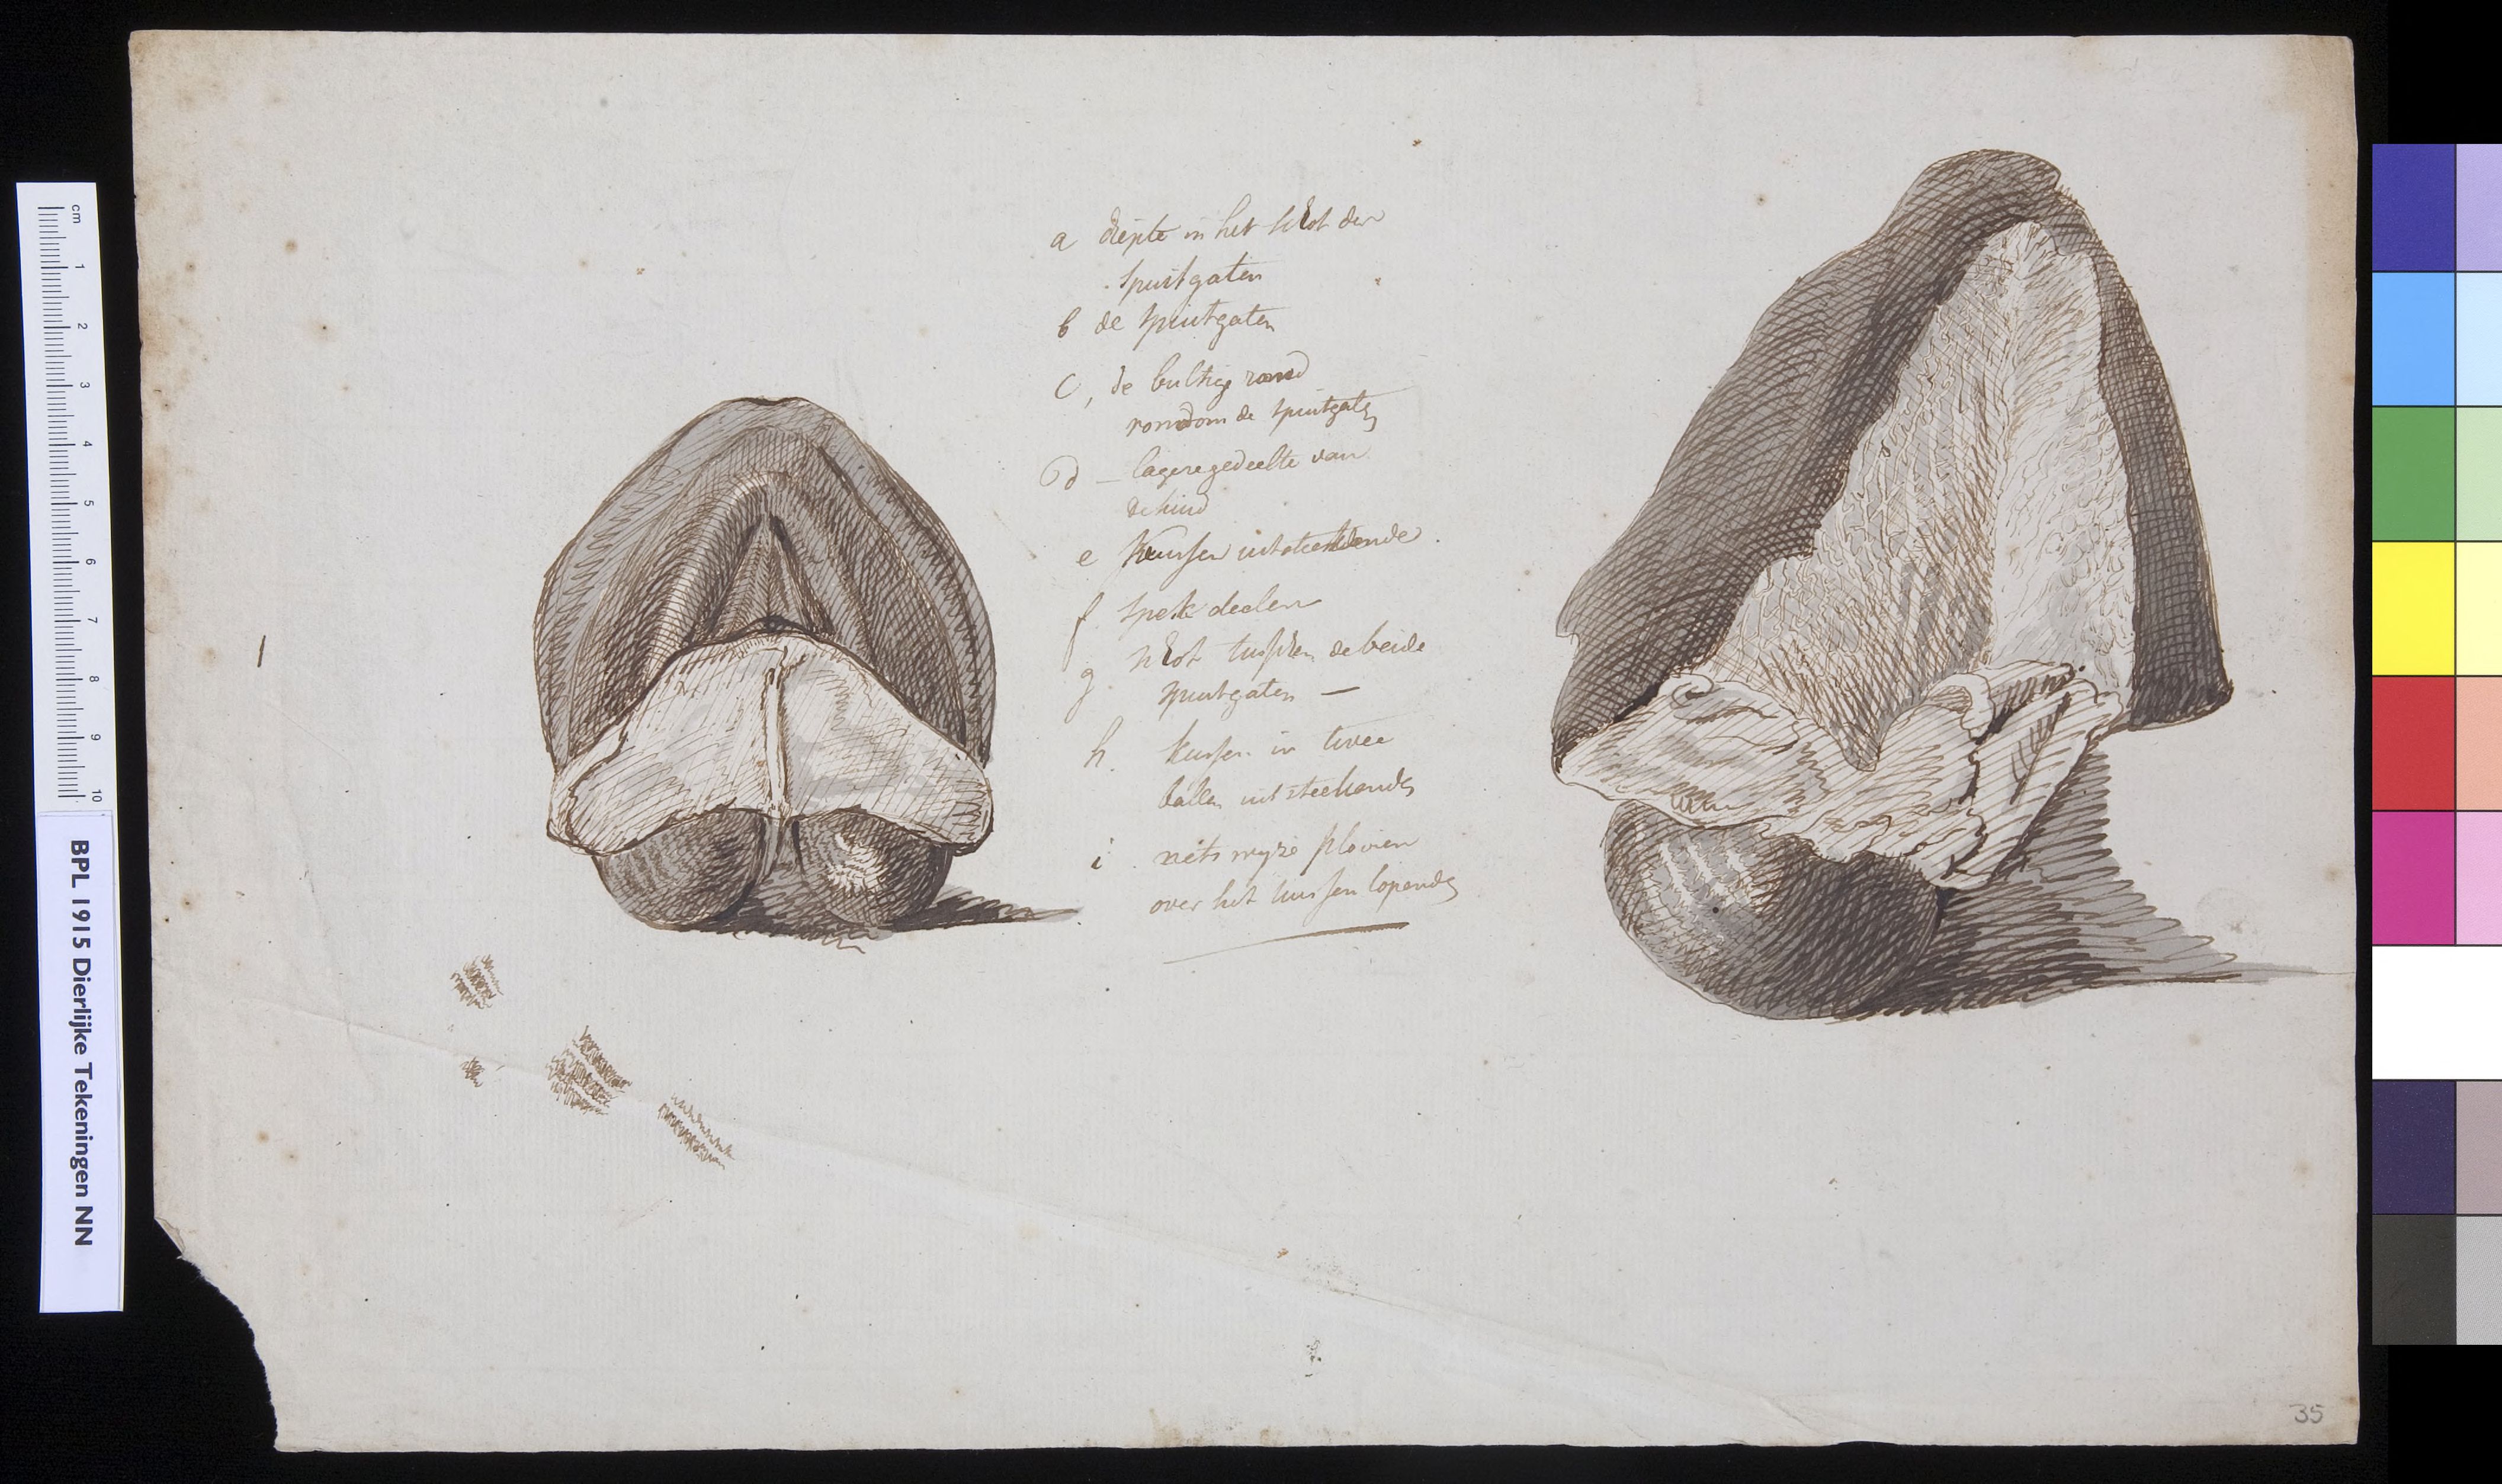 a diepte in het schot der
spuitgaten
b de spuitgaten
c, de bultige rand
rondom de spuitgaten
d — lagere gedeelte van
de huid
e Kussen uitsteekende.
f. spek deelen
g schot tusschen de beide
spuitgaten —
h. kussen in twee
ballen uitsteekende
i nets wyze ploien
over het kussen lopende
35
cm
1
2
3
4
5
6
7
8
9
10
BPL 1915 Dierlijke Tekeningen NN